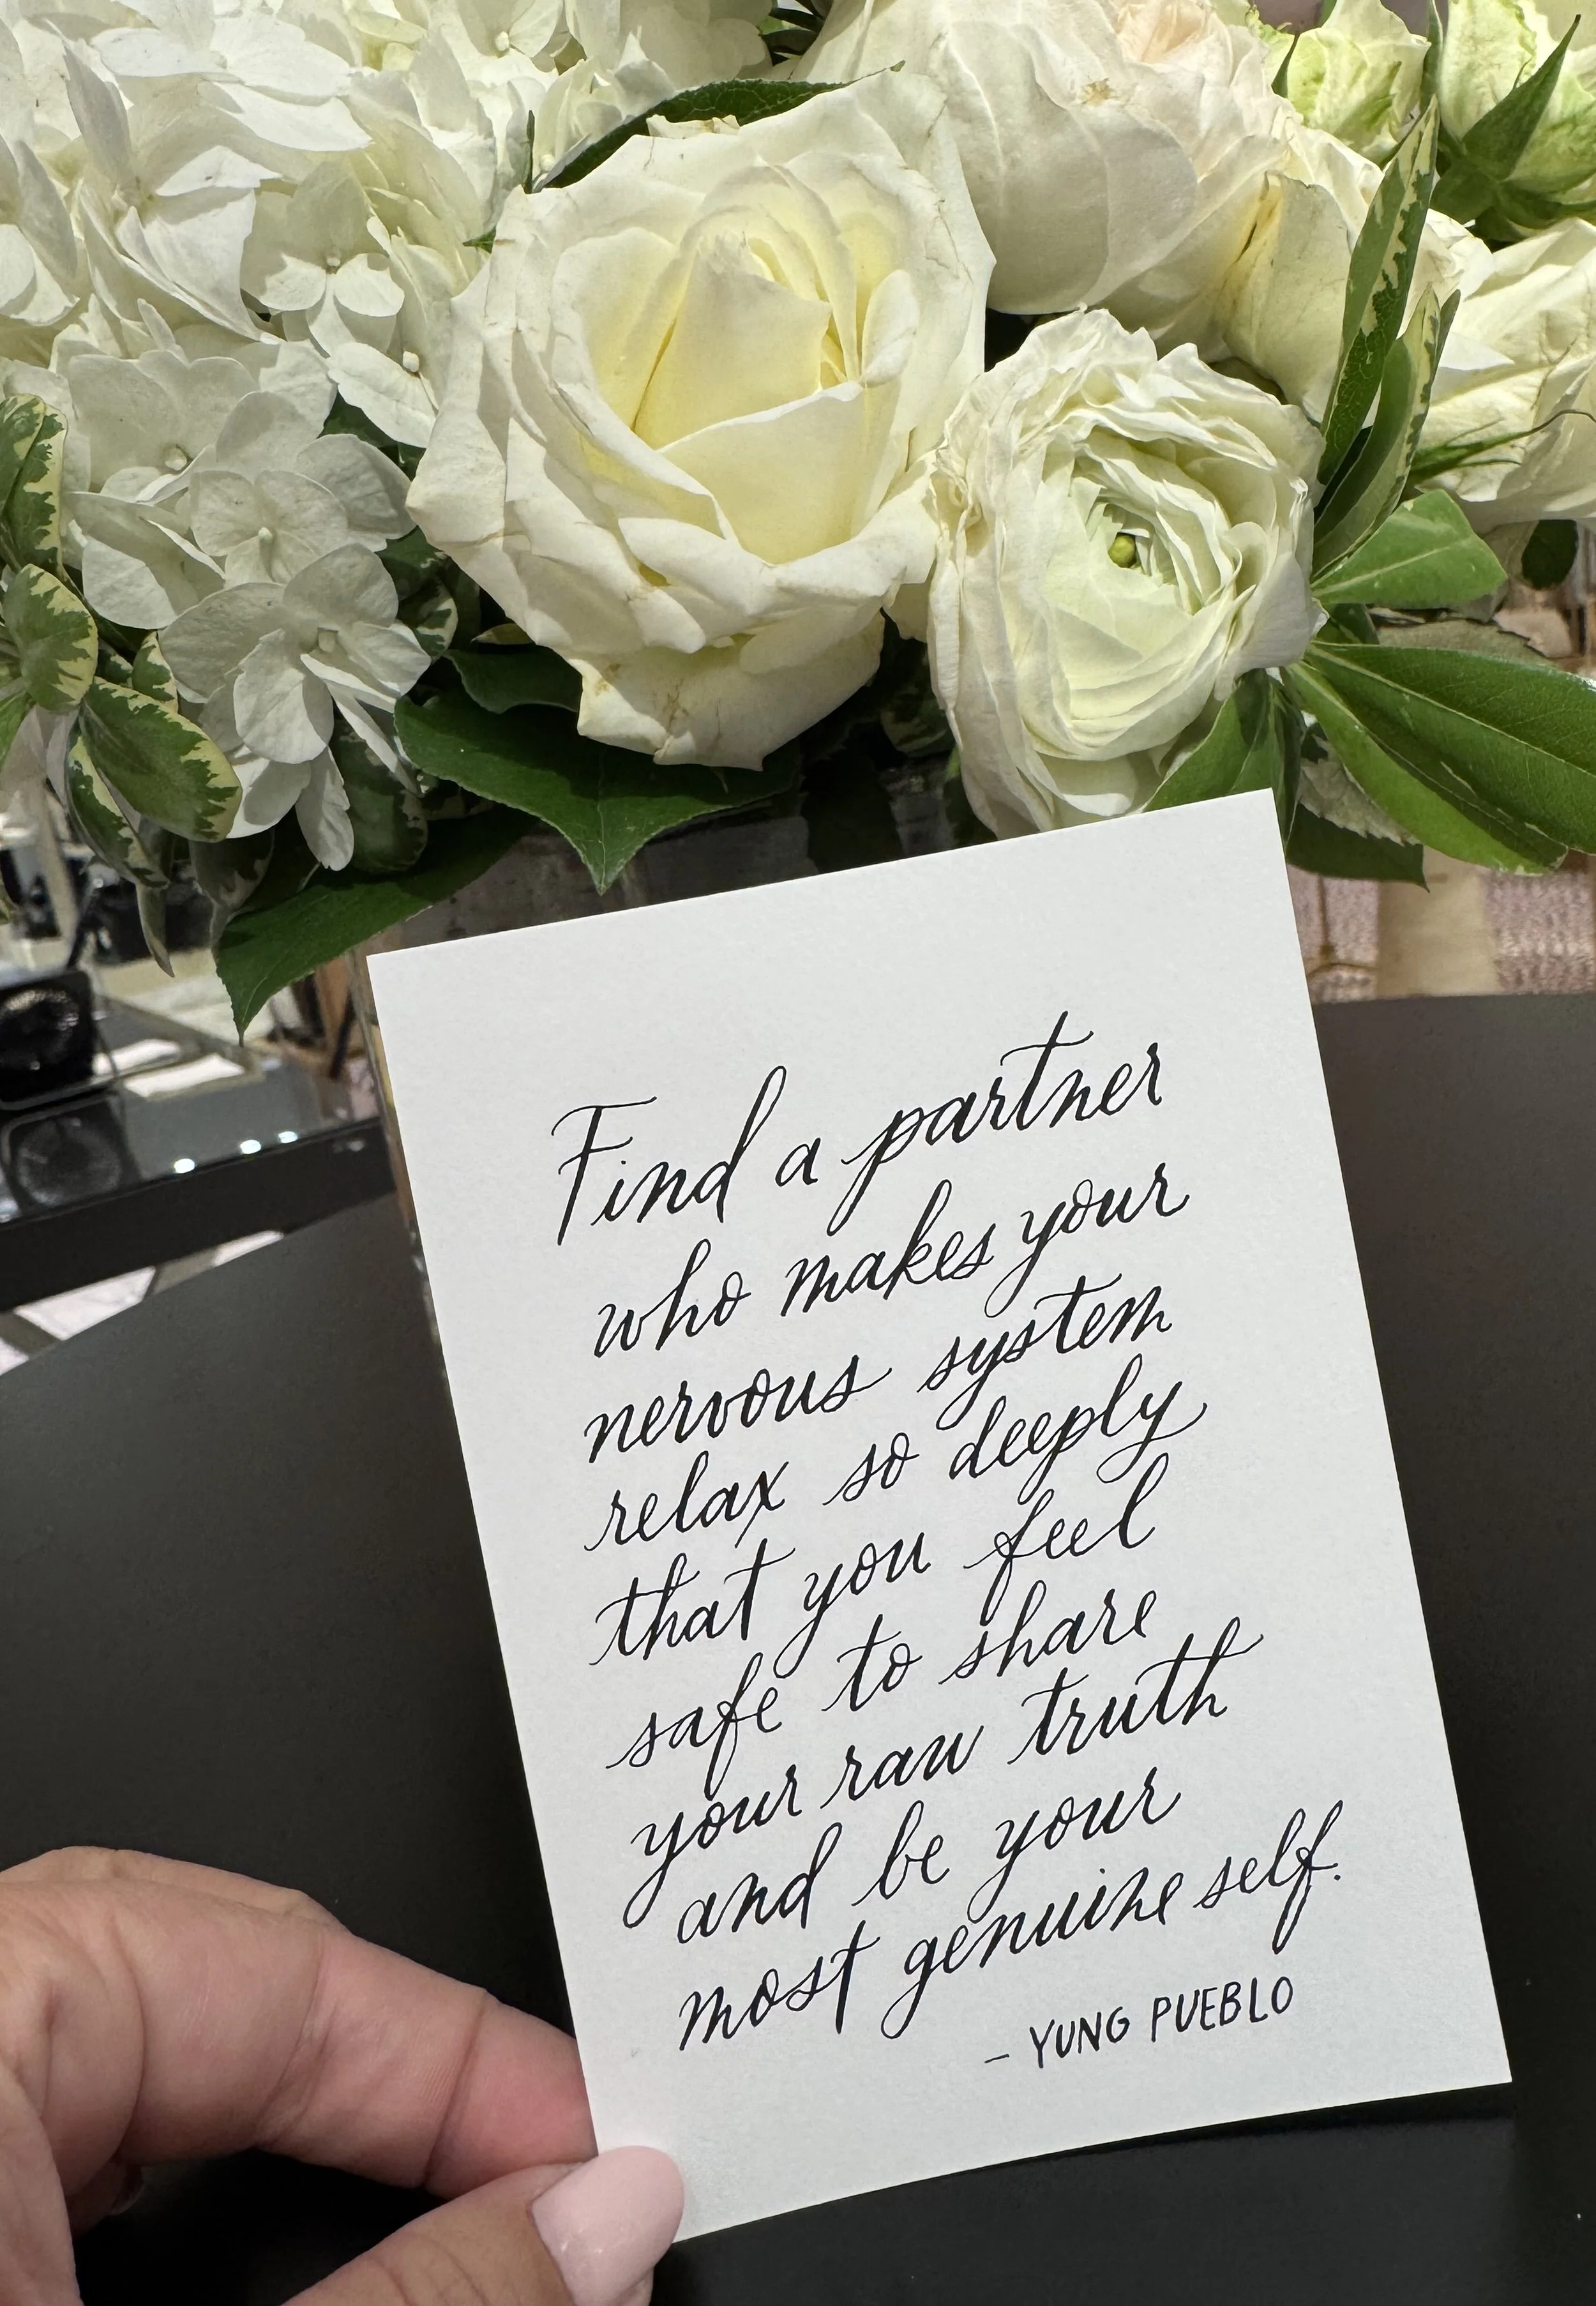 Find a partner
who makes your
nervous system
relax so deeply
that you feel
safe to share
your raw truth
and be your
most genuine self.
- YUNG PUEBLO